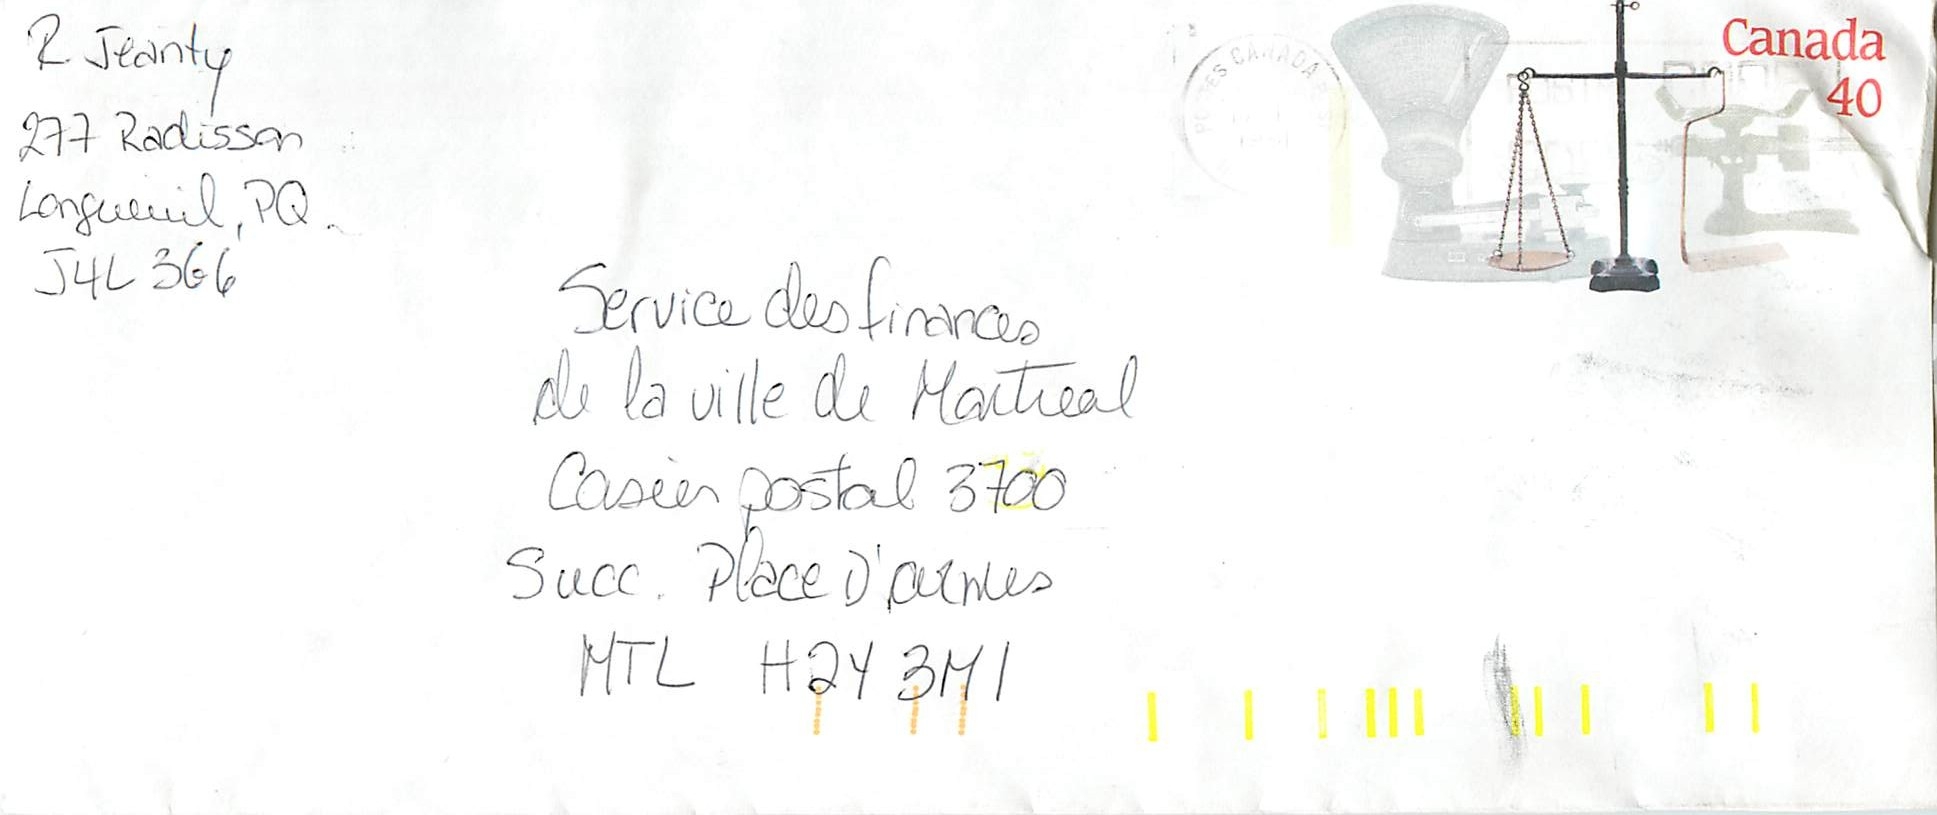 R Jeanty
277 Radisson
Longueuil, PQ.
J4L 3G6
POSTES CANADA
Canada
40
Service des finances
de la ville de Montreal
Casier postal 3700
Succ. Place D'armes
MTL H2Y 3M1